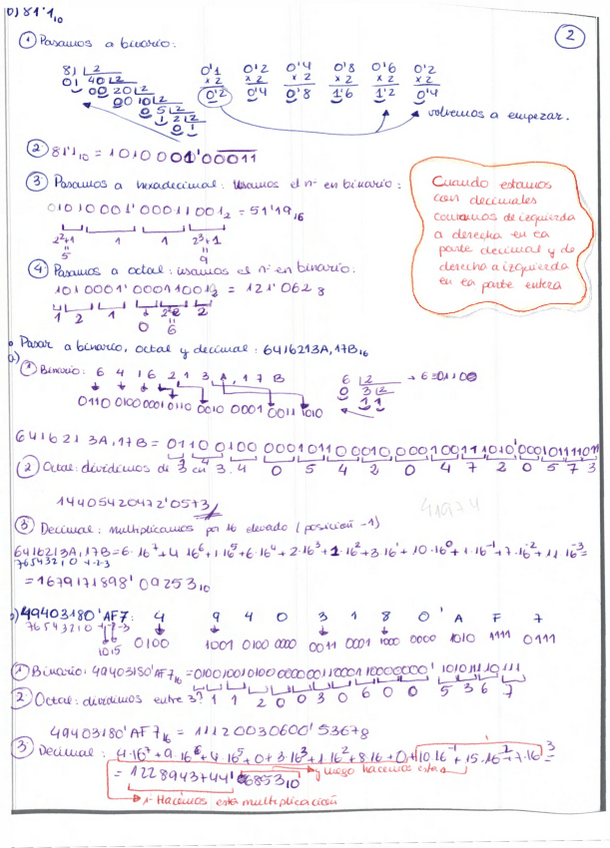 b) 81'1₁₀
2
① Pasamos a binario:
81 |2
01 40 |2
00 20 |2
00 10 |2
0 5 |2
1 2 |2
0 1
0'1 0'2 0'4 0'8 0'6 0'2
x2 x2 x2 x2 x2 x2
0'2 0'4 0'8 1'6 1'2 0'4
volvemos a empezar.
② 81'1₁₀ = 1010001'00011
③ Pasamos a hexadecimal: usamos el nº en binario:
01010001'00011001₂ = 51'19₁₆
2²+1 1 1 2³+1
5 9
Cuando estamos
con decimales
contamos de izquierda
a derecha en la
parte decimal y de
derecha a izquierda
en la parte entera
④ Pasamos a octal: usamos el nº en binario:
1010001'000110012 = 121'062₈
1 2 1 0 6 2
Pasar a binario, octal y decimal: 6416213A,17B₁₆
a)
① Binario: 6 4 1 6 2 1 3 A, 1 7 B
6 |2
0 3 |2
1 1
0110 0100 0001 0110 0010 0001 0011 1010
6416213A,17B = 0110 0100 0001 0110 0010 0001 0011 1010'0001 0111 1011
② Octal: dividimos de 3 en 3.
1 4 4 0 5 4 2 0 4 7 2 0 5 7 3
14405420472'0573
③ Decimal: multiplicamos por 16 elevado (posición -1)
6416213A,17B = 6·16⁷+4·16⁶+1·16⁵+6·16⁴+2·16³+1·16²+3·16¹+10·16⁰+1·16⁻¹+7·16⁻²+11·16⁻³=
76543210 -1-2-3
= 1679171898'09253₁₀
b) 49403180'AF7: 4 9 4 0 3 1 8 0' A F 7
76543210 -1-2-3
10 15
0100 1001 0100 0000 0011 0001 1000 0000 1010 1111 0111
① Binario: 49403180'AF7₁₆ = 01001001010000000011000110000000'101011110111
② Octal: dividimos entre 3? 1 1 1 2 0 0 3 0 6 0 0 5 3 6 7
49403180'AF7₁₆ = 11120030600'5367₈
③ Decimal: 4·16⁷+9·16⁶+4·16⁵+0+3·16³+1·16²+8·16+0+10·16⁻¹+15·16⁻²+7·16⁻³=
= 1228943744'6853₁₀
y luego hacemos esta
1º Hacemos esta multiplicación